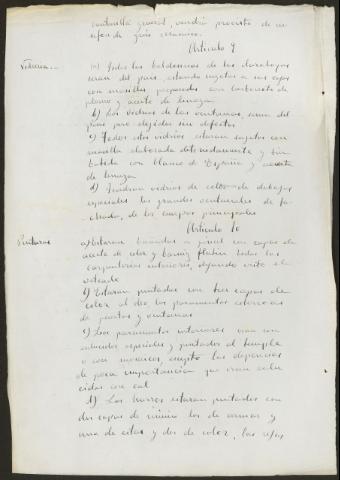 ventanilla general, vendrá provista de un
sifon de gres ceramico.
Articulo 9
Vidrieria._ a) Todos los baldosines de los claraboyas
seran del pais, estando sujetos a sus cajas
con masillas preparadas con carbonato de
plomo y aceite de linaza.
b) Los vidrios de las ventanas, seran del
pais pero elegidos sin defectos.
c) Todos estos vidrios estaran sujetos con
masilla elaborada detenidamente y bien
batida con blanco de España y aceite
de linaza
d) Tendran vidrios de colores de dibujos
especiales los grandes ventanales de fa-
chada, de los cuerpos principales
Articulo 10
Pinturas a) Estaran barnizadas a pincel con capas de
aceite de color y barniz flatin todas las
carpinterias interiores, dejando visto el
veteado
b) Estaran pintados con tres capas de
color al oleo, los paramentos exteriores
de puertas y ventanas
c) Los paramentos interiores iran con
enlucidos especiales y pintados al temple
o con mosaicos, excepto las dependencias
de poca importancia que iran enlu
cidas con cal
d) Los hierros estaran pintados con
dos capas de minio los de armar y
una de estas y dos de color, las rejas